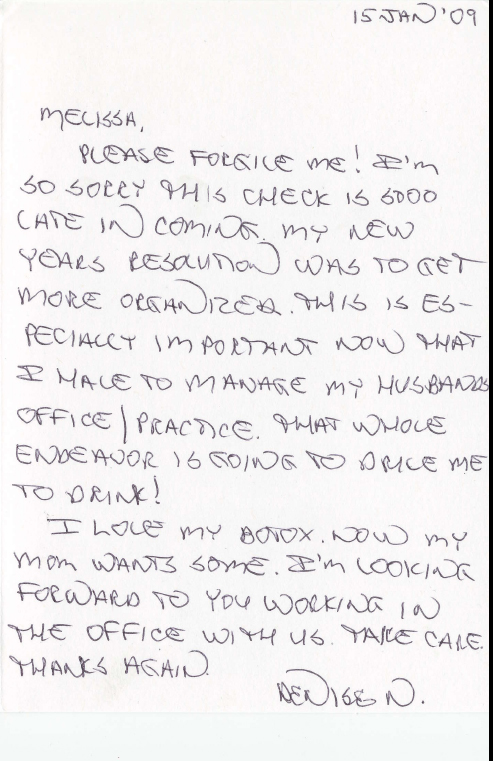 15 JAN '09
MELISSA,
PLEASE FORGIVE ME! I'M
SO SORRY THIS CHECK IS SOOO
LATE IN COMING. MY NEW
YEARS RESOLUTION WAS TO GET
MORE ORGANIZED. THIS IS ES-
PECIALLY IMPORTANT NOW THAT
I HAVE TO MANAGE MY HUSBANDS
OFFICE/PRACTICE. THAT WHOLE
ENDEAVOR IS GOING TO DRIVE ME
TO DRINK!
I LOVE MY BOTOX. NOW MY
MOM WANTS SOME. I'M LOOKING
FORWARD TO YOU WORKING IN
THE OFFICE WITH US. TAKE CARE.
THANKS AGAIN.
DENISE N.